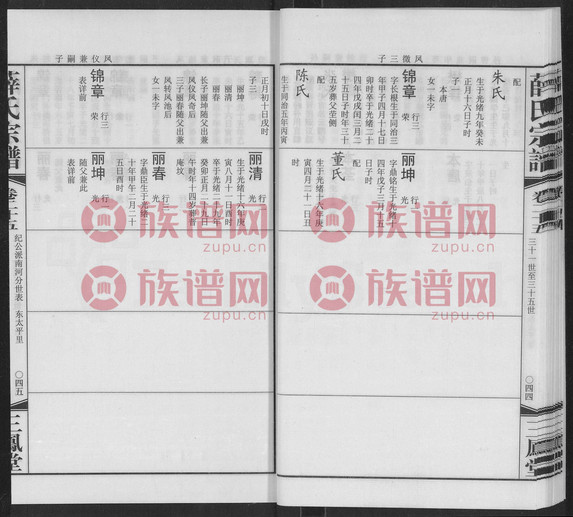 薛氏宗譜
三十一世至三十五世
〇四四
三鳳堂
风微三子
配
朱氏
生于光绪九年癸未
正月十六日子时
子一
本唐
女一未字
锦章 行三
字长根生于同治三
年甲子四月十七日
卯时卒于光绪二十
四年戊戌闰三月二
十五日子时年三十
五岁葬父茔侧
配
陈氏
生于同治五年丙寅
丽坤 行光
字鼎铭生于光绪十
四年戊子三月十五
日子时
配
董氏
生于光绪十六年庚
寅四月二十一日丑
时
风仪兼嗣子
正月初十日戌时
子三
丽坤
丽清
丽春
长子丽坤随父出兼
风仪风奇后
三子丽春随父出兼
风转风池后
女一未字
锦章 行三
表详前
丽清 行光
生于光绪十六年庚
寅八月十一日酉时
卒于光绪二十九年
癸卯正月二十九日
午时年十四岁葬首
庵坟
丽春 行光
字鼎臣生于光绪二
十年甲午二月二十
五日酉时
丽坤 行光
随父兼此
表详前
薛氏宗譜
卷三十五
纪公派南河分世表 东太平里
〇四五
三鳳堂
族谱网
zupu.cn
族谱网
zupu.cn
族谱网
zupu.cn
族谱网
zupu.cn
族谱网
zupu.cn
族谱网
zupu.cn